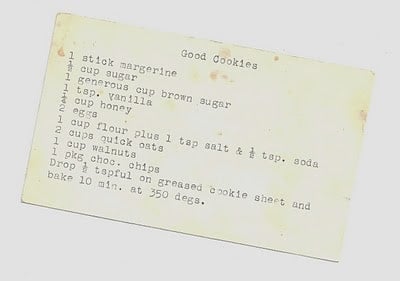 Good Cookies
1 stick margerine
½ cup sugar
1 generous cup brown sugar
1 tsp. vanilla
¼ cup honey
2 eggs
1 cup flour plus 1 tsp salt & ½ tsp. soda
2 cups quick oats
1 cup walnuts
1 pkg choc. chips
Drop ½ tspful on greased cookie sheet and
bake 10 min. at 350 degs.